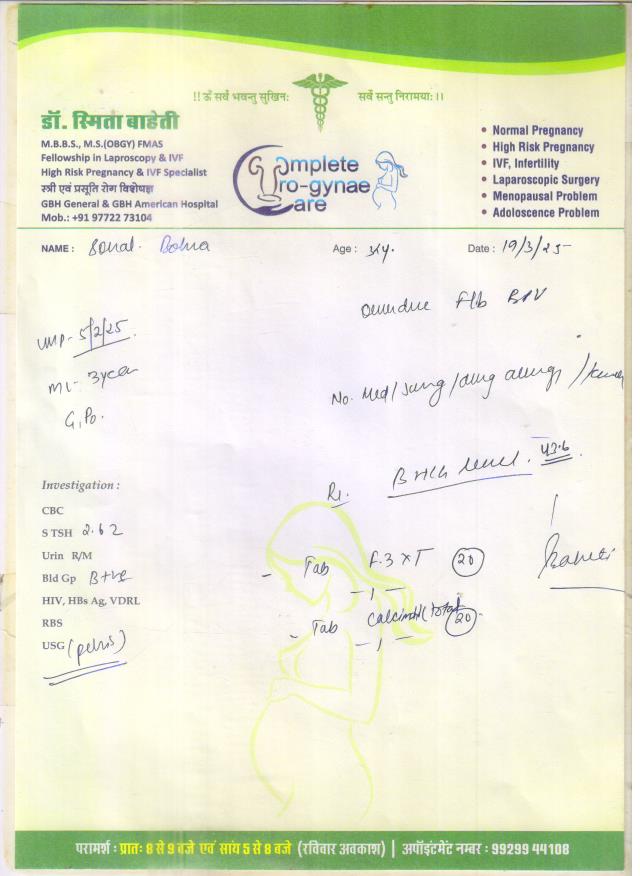 !! ॐ सर्वे भवन्तु सुखिनः सर्वे सन्तु निरामयाः ।।
डॉ. स्मिता बाहेती
M.B.B.S., M.S.(OBGY) FMAS
Fellowship in Laproscopy & IVF
High Risk Pregnancy & IVF Specialist
स्त्री एवं प्रसूति रोग विशेषज्ञ
GBH General & GBH American Hospital
Mob.: +91 97722 73104
Complete
Uro-gynae
Care
• Normal Pregnancy
• High Risk Pregnancy
• IVF, Infertility
• Laparoscopic Surgery
• Menopausal Problem
• Adoloscence Problem
NAME : Sonal Age : Date : 19/3/25
overdue
LMP- 5/2/25
ML- 3year
No. Med/surg/drug allergy
G,P0.
B HCG level. 43.6
Investigation :
Rx
CBC
S TSH 2.62
Urin R/M
Tab (20)
Bld Gp B+ve
HIV, HBs Ag, VDRL
RBS
Tab (20)
USG (pelvis)
परामर्श : प्रातः 8 से 9 बजे एवं सांय 5 से 8 बजे (रविवार अवकाश) | अपॉइंटमेंट नम्बर : 99299 44108